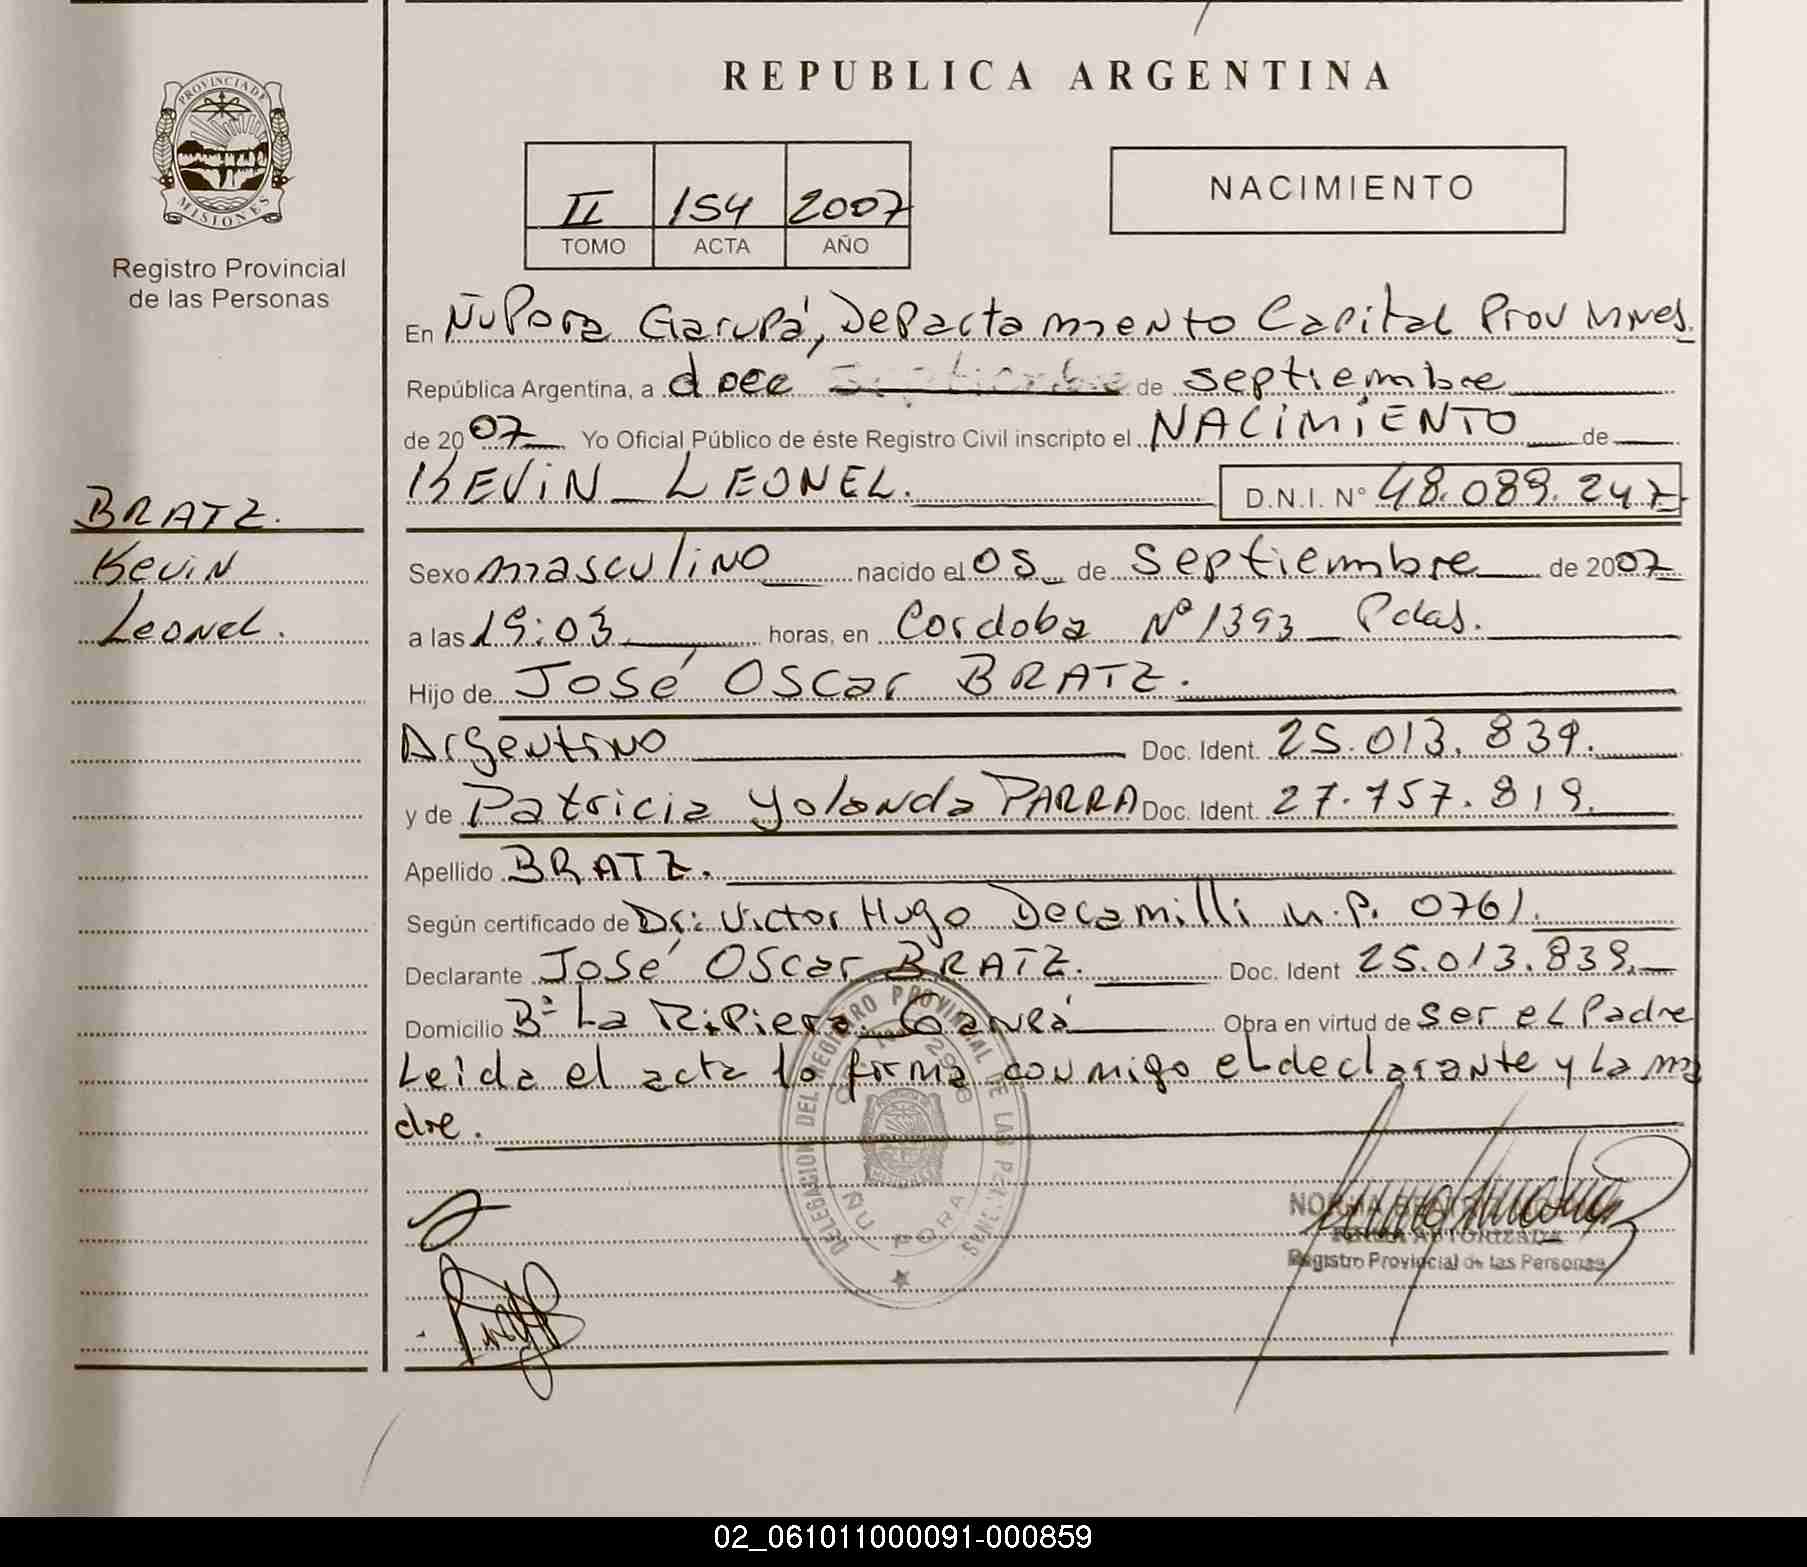 REPUBLICA ARGENTINA
PROVINCIA DE
MISIONES
Registro Provincial
de las Personas
II 154 2007
TOMO ACTA AÑO
NACIMIENTO
En Ñu Pora Garupá, Departamento Capital Prov Mnes.
República Argentina, a doce septiembre de septiembre
de 2007 Yo Oficial Público de éste Registro Civil inscripto el NACIMIENTO de
KEVIN LEONEL. D.N.I. N° 48.089.247
BRATZ.
Kevin
Leonel.
Sexo masculino nacido el 05 de septiembre de 2007
a las 19:03 horas, en Cordoba Nº 1393 Pdas.
Hijo de José Oscar BRATZ.
Argentino Doc. Ident. 25.013.839.
y de Patricia Yolanda PARRA Doc. Ident. 27.757.819.
Apellido BRATZ.
Según certificado de Dr: Victor Hugo Decamilli M.P. 0761.
Declarante José Oscar BRATZ. Doc. Ident 25.013.839.
Domicilio Bº La Ripiera Garupá Obra en virtud de ser el Padre
Leida el acta la firma conmigo el declarante y la ma
dre.
DELEGACION DEL REGISTRO PROVINCIAL DE LAS PERSONAS
ÑU PORA
NORMA
FIRMA AUTORIZADA
Registro Provincial de las Personas
02_061011000091-000859